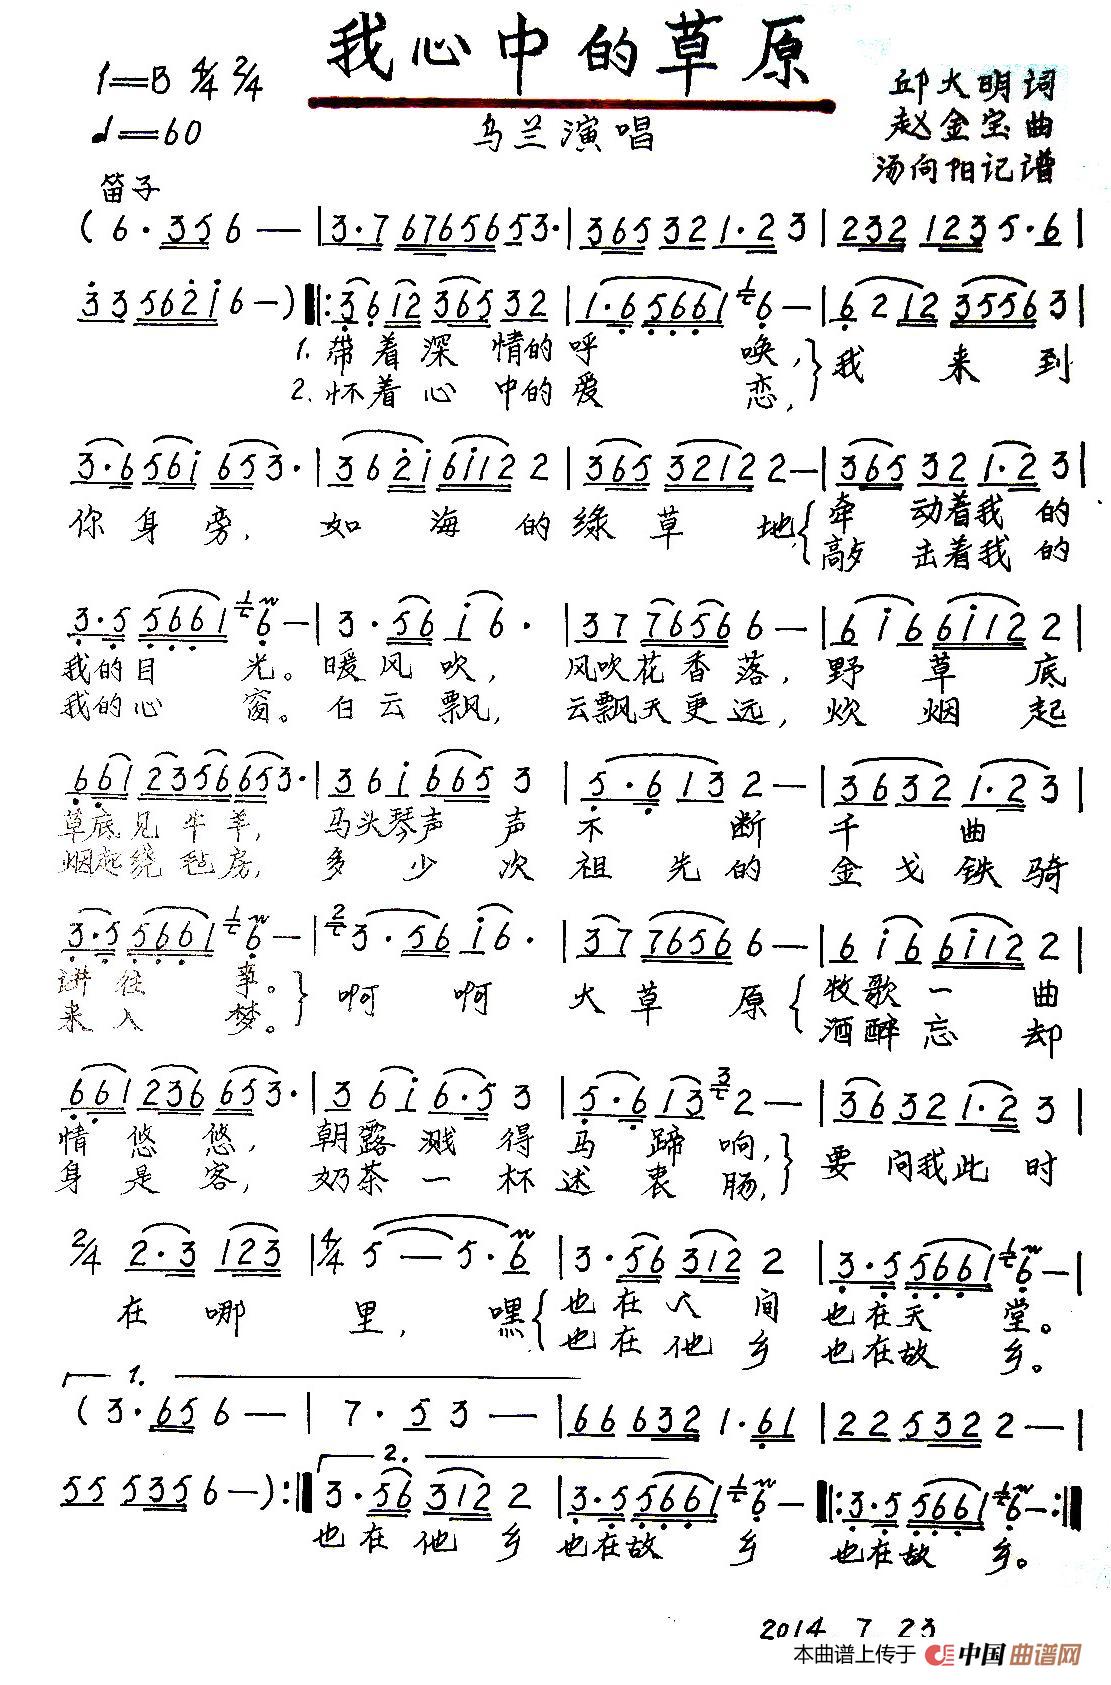 我心中的草原
1=B 4/4 2/4
♩=60
乌兰演唱
邱大明词
赵金宝曲
汤向阳记谱
笛子
(6·356— |3·76765653·|365321·23|2321235·6|
335621̇6—)‖:3612365 32|1·656611/6—|6212 35563|
1.带着深情的呼唤,}我来到
2.怀着心中的爱恋,
3·6561̇653·|362̇1̇61̇122|365 32122—|365321·23|
你身旁,如海的绿草地,{牵动着我的
敲击着我的
3·5566116—|3·561̇6·|37765666—|61̇661̇122|
我的目光。暖风吹,风吹花香落,野草底
我的心窗。白云飘,云飘天更远,炊烟起
66123566 53·|361̇6653|5·6132—|36321·23|
草底见牛羊,马头琴声声不断千曲
烟起绕毡房,多少次祖先的金戈铁骑
3·5566116—|3·561̇6·|37765666—|61̇661̇122|
讲往事。}啊啊大草原{牧歌一曲
来入梦。酒醉忘却
661236653·|361̇6·53|5·6132—|36321·23|
情悠悠,朝露溅得马蹄响,}要问我此时
身是客,奶茶一杯述衷肠,
2/4 2·3 123|4/4 5—5·6|3·563122|3·5566116—|
在哪里,嘿{也在人间也在天堂。
也在他乡也在故乡。
1.
(3·656—|7·53—|666321·61|2253 22—|
2.
5553 56—):‖3·563122|3·5566116—‖:3·5566116—:‖
也在他乡也在故乡也在故乡。
2014 7 23
本曲谱上传于 中国曲谱网